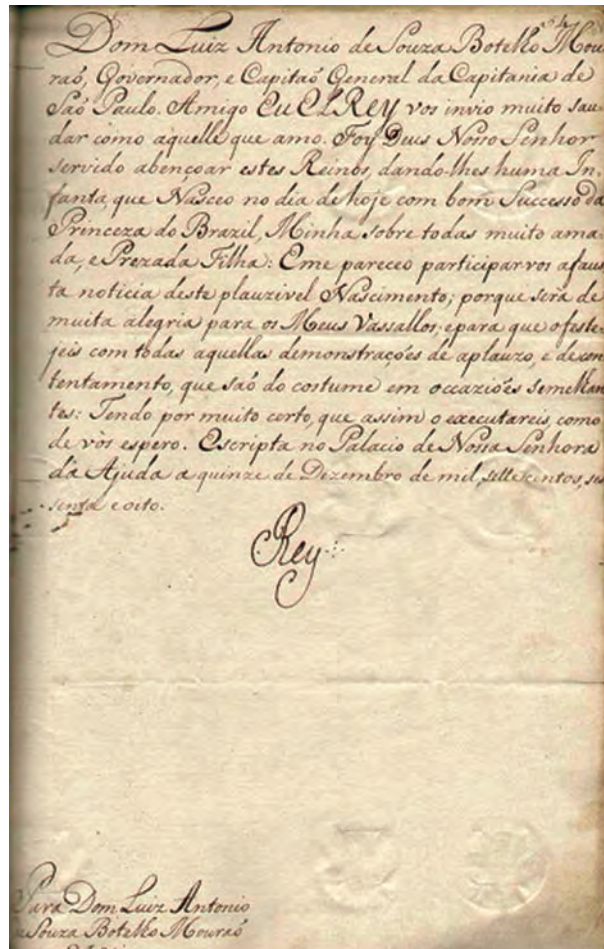 Dom Luiz Antonio de Souza Botelho Mou-
raõ, Governador, e Capitaõ General da Capitania de
Saõ Paulo. Amigo EU ELREY vos invio muito sau-
dar como aquelle que amo. Foy Deus Nosso Senhor
servido abençoar estes Reinos, dando-lhes huma In-
fanta, que Nasceo no dia de hoje com bom Successo da
Princeza do Brazil, Minha sobre todas muito ama-
da, e Prezada Filha: E me pareceo participarvos a faus-
ta noticia deste plauzivel Nascimento; porque será de
muita alegria para os Meus Vassallos; e para que o feste-
jeis com todas aquellas demonstrações de aplauzo, e de con-
tentamento, que saõ do costume em occaziões semelhan-
tes: Tendo por muito certo, que assim o executareis, como
de vós espero. Escripta no Palacio de Nossa Senhora
dá Ajuda a quinze de Dezembro de mil, settecentos, ses-
senta e oito.
Rey
Para Dom Luiz Antonio
de Souza Botelho Mouraõ